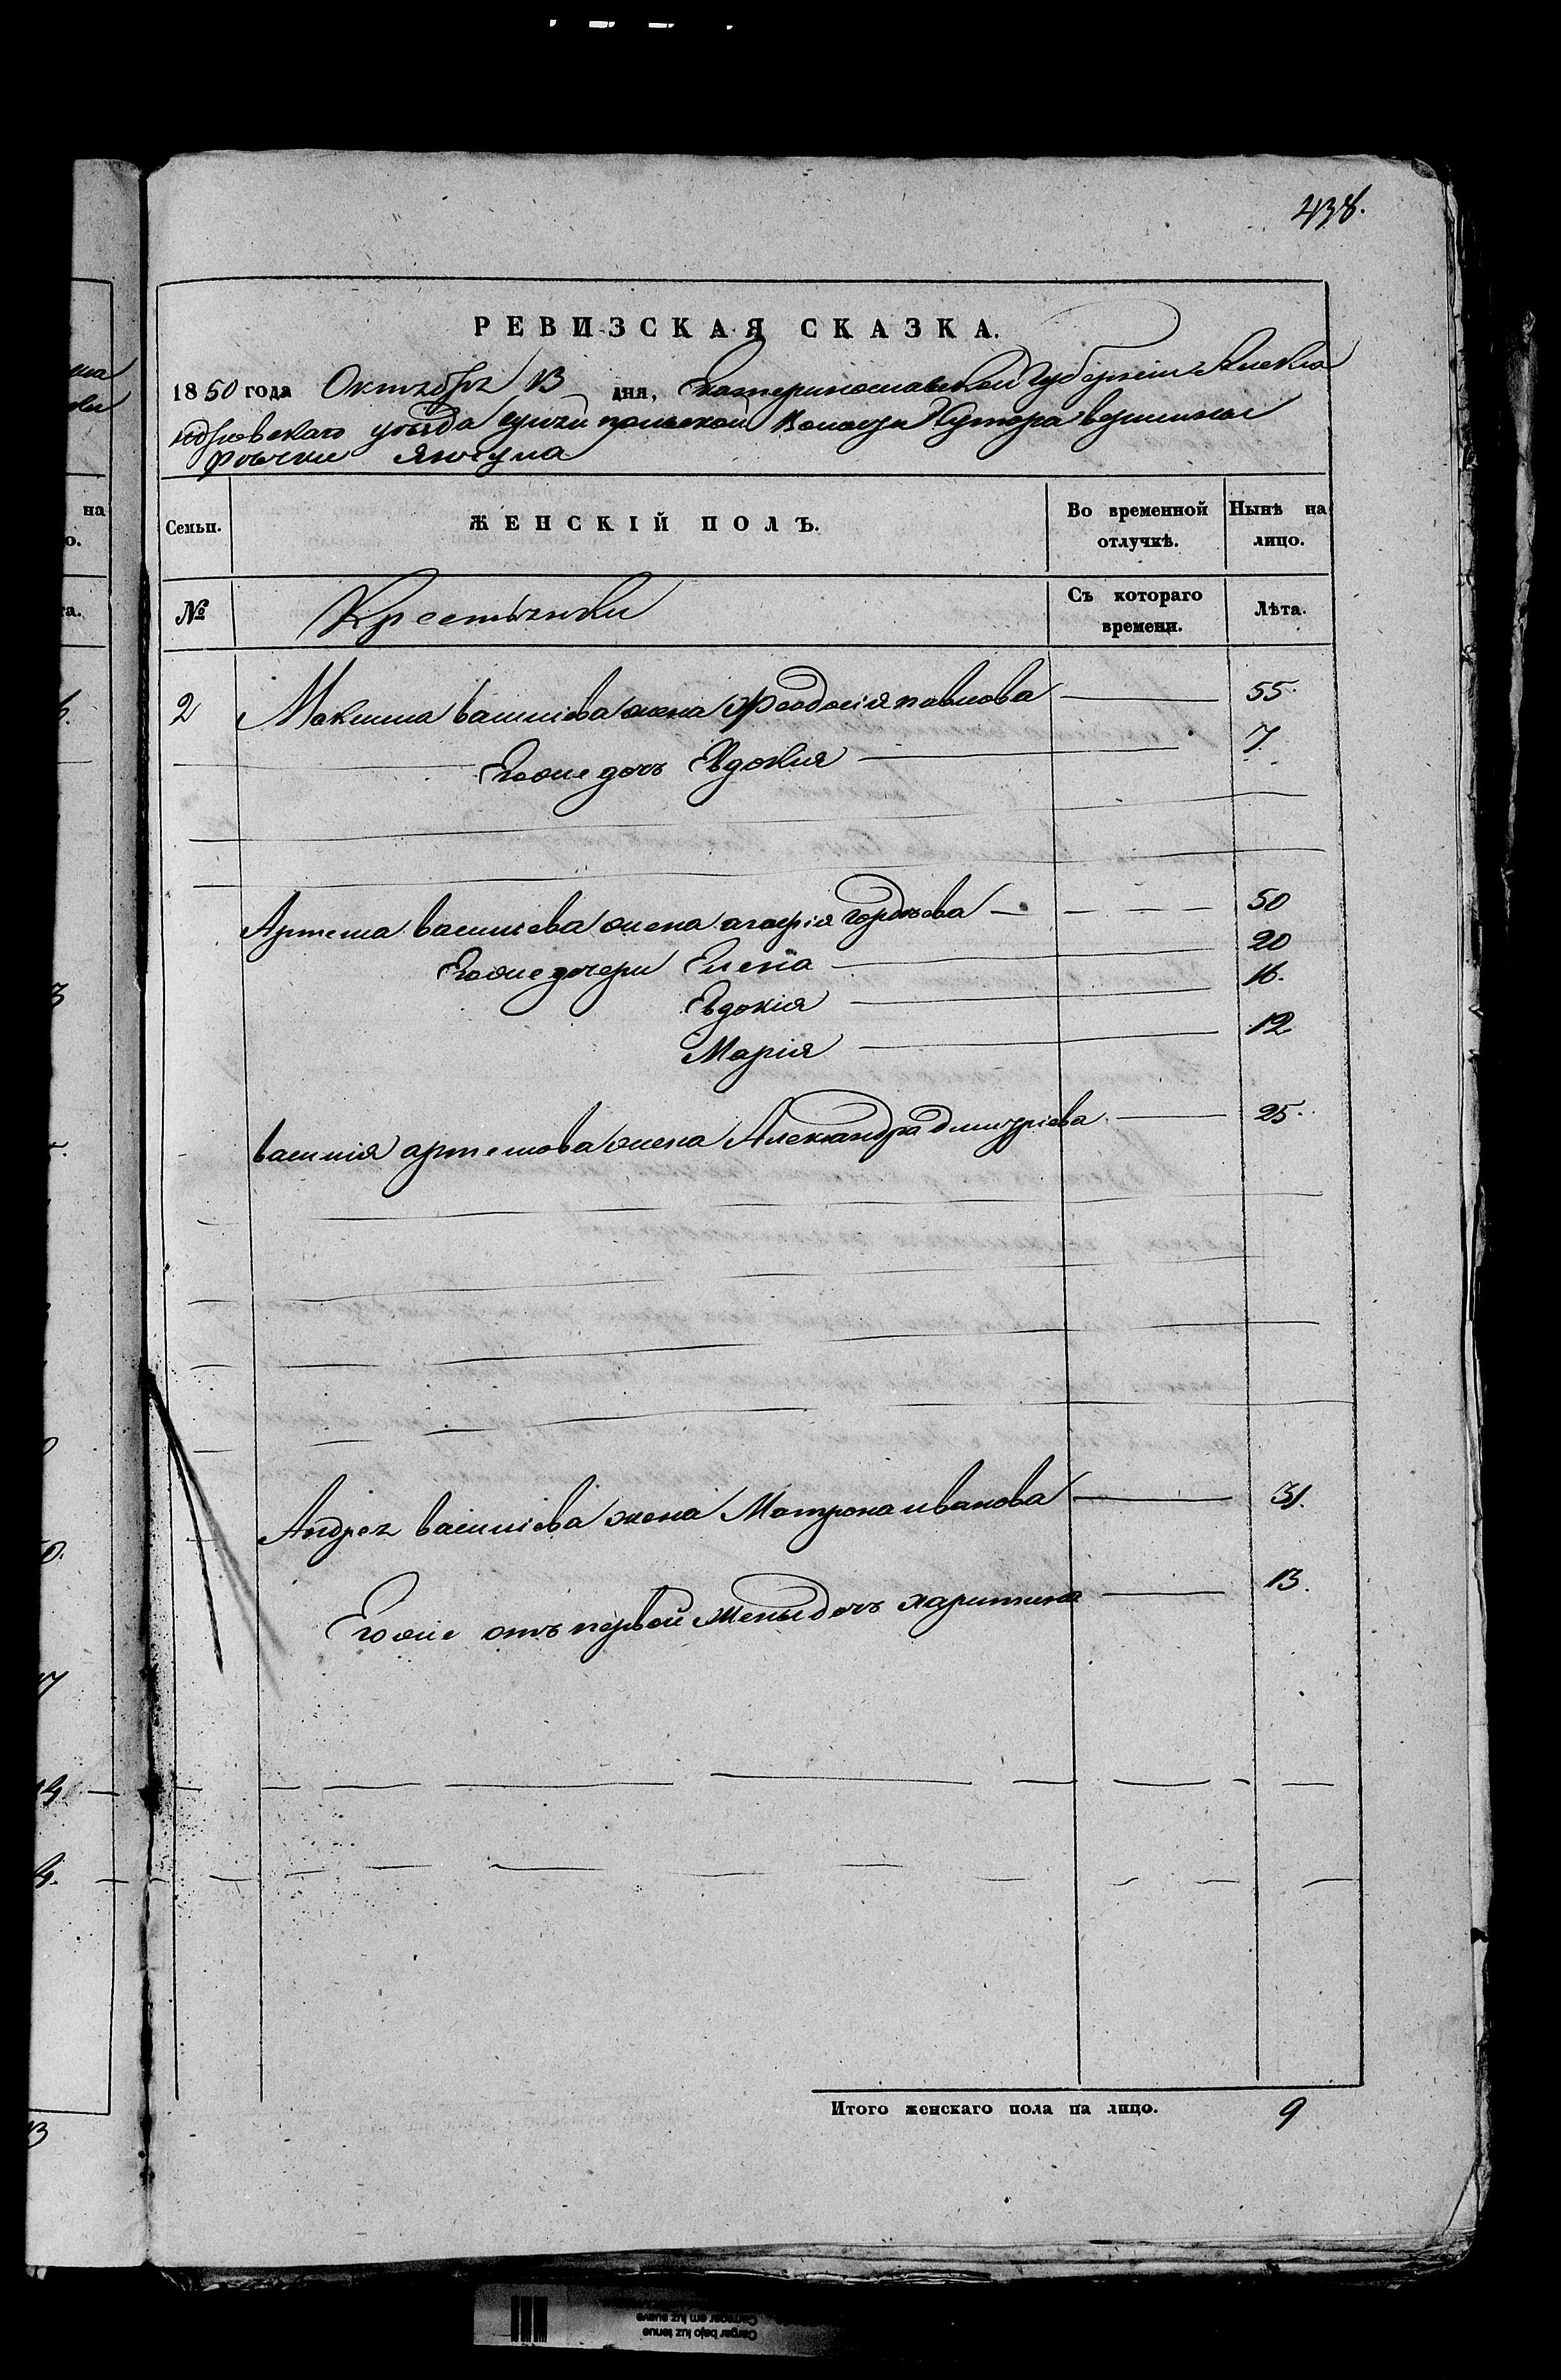 438.
РЕВИЗСКАЯ СКАЗКА.
1850 года Октября 13 дня, Екатеринославской Губерніи Алекса
ндровскаго уѣзда Гуляй польской Волости Хутора вершины
рѣчки Янчула
на
о.
Семьи. ЖЕНСКІЙ ПОЛЪ. Во временной отлучкѣ. Нынѣ на лицо.
№ Крестьянки Съ котораго времени. Лѣта.
2 Максима василіева жена Феодосія павлова 55.
Егоже дочь Евдокия 7.
Артема василіева жена агафія гордѣева 50
Егоже дочери Елена 20
Евдокія 16.
Марія 12
василія артемова жена Александра дмитріева 25.
Андрея василіева жена Матрона иванова 31.
Егоже отъ первой жены дочь харитина 13.
Итого женскаго пола на лицо. 9
Cargar bajo luz tenue
Carregar em luz suave